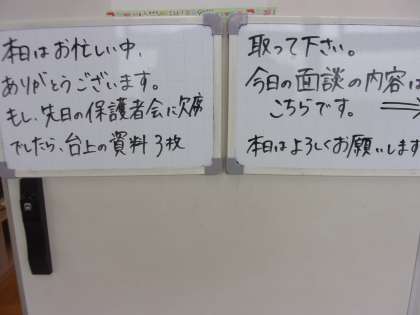 本日はお忙しい中、
ありがとうございます。
もし、先日の保護者会に欠席
でしたら、台上の資料 3枚
取って下さい。
今日の面談の内容は
こちらです。
本日はよろしくお願いします